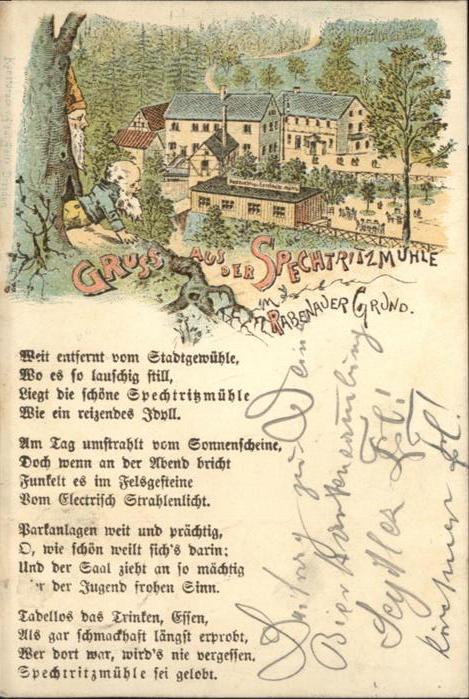 GRUSS AUS DER SPECHTRITZMÜHLE
IM RABENAUER GRUND.
Weit entfernt vom Stadtgewühle,
Wo es so lauschig still,
Liegt die schöne Spechtritzmühle
Wie ein reizendes Idyll.
Am Tag umstrahlt vom Sonnenscheine,
Doch wenn an der Abend bricht
Funkelt es im Felsgesteine
Vom Electrisch Strahlenlicht.
Parkanlagen weit und prächtig,
O, wie schön weilt sich's darin;
Und der Saal zieht an so mächtig
der Jugend frohen Sinn.
Tadellos das Trinken, Essen,
Als gar schmackhaft längst erprobt,
Wer dort war, wird's nie vergessen,
Spechtritzmühle sei gelobt.
Beitrag zu Dein
Bier